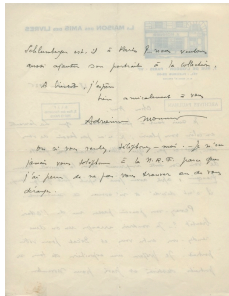 Schlumberger est-il à Paris ? Je voudrais
aussi ajouter son portrait à la collection.
A bientôt, j'espère
bien amicalement à vous
Adrienne Monnier
Ou si vous voulez, téléphonez-moi. Je n'ose
jamais vous téléphoner à la N.R.F. parce que
j'ai peur de ne pas vous trouver ou de vous
déranger.